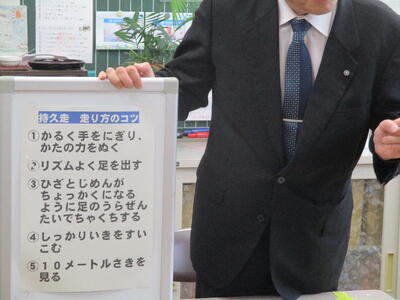 持久走　走り方のコツ
①かるく手をにぎり、
かたの力をぬく
♪リズムよく足を出す
③ひざとじめんが
ちょっかくになる
ように足のうらぜん
たいでちゃくちする
④しっかりいきをすい
こむ
⑤１０メートルさきを
見る